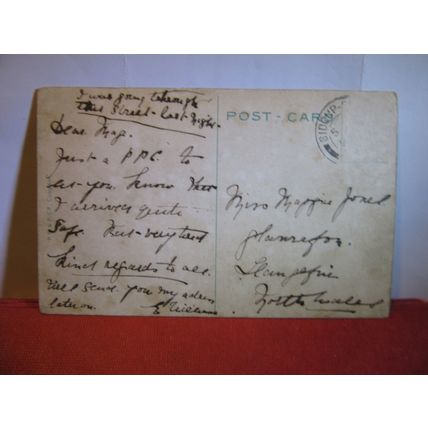 I was going through
this street last night.
Dear Mag.
Just a PPC to
let you know that
I arrived quite
safe But very tired
Kindest regards to all.
Will send you my address
later on.
E Williams
POST - CARD
Miss Maggie Jones
North Wales